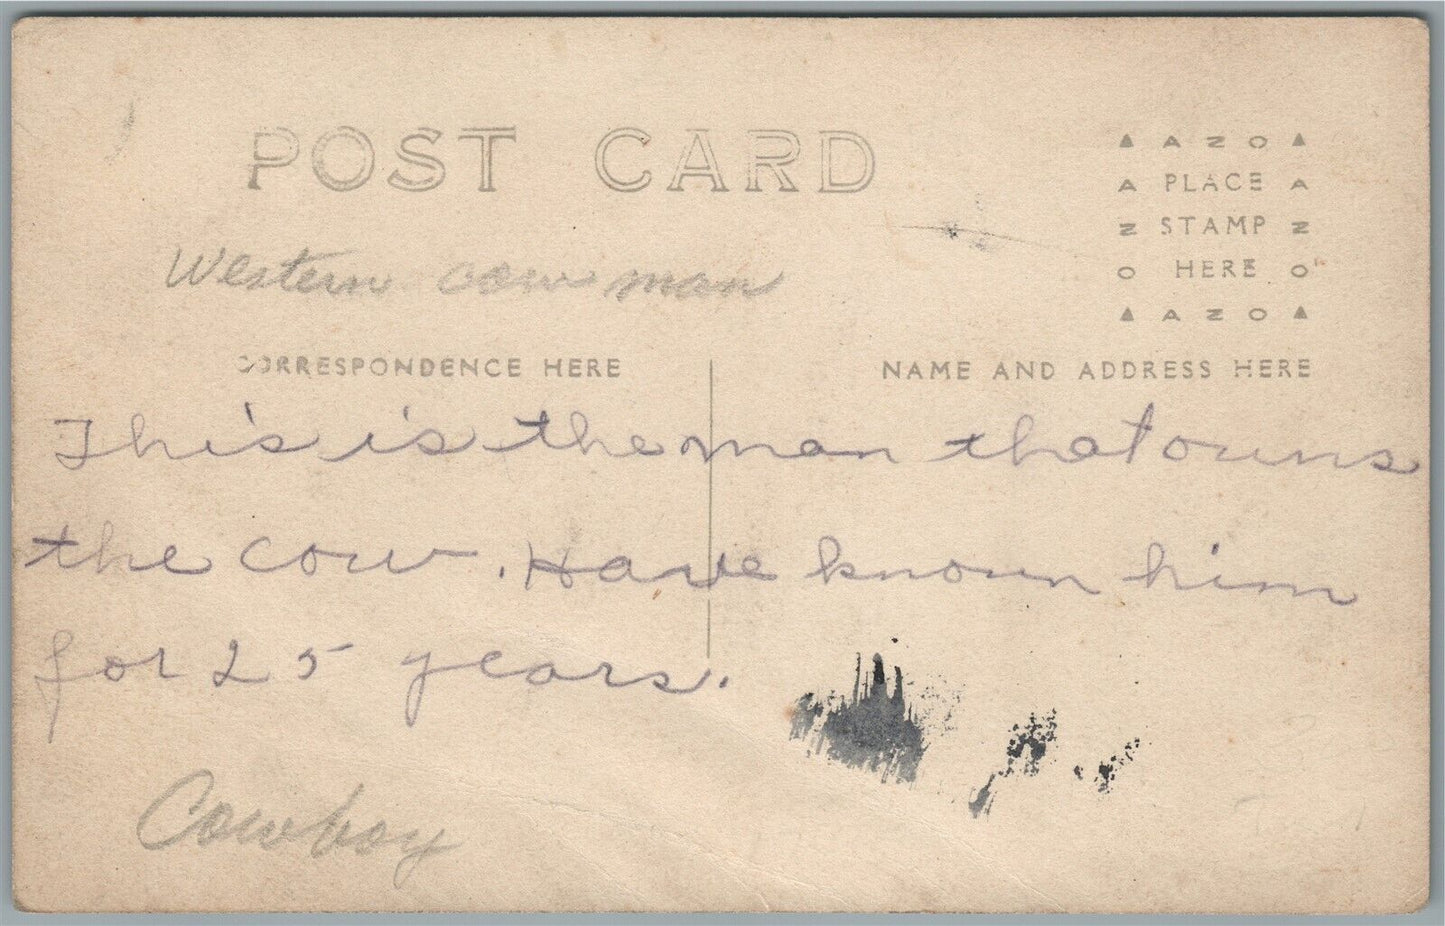 POST CARD
▲ A Z O ▲
A PLACE A
Z STAMP Z
O HERE O
▲ A Z O ▲
Western cow man
CORRESPONDENCE HERE
NAME AND ADDRESS HERE
This is the man that owns
the cow. Have known him
for 25 years.
Cowboy